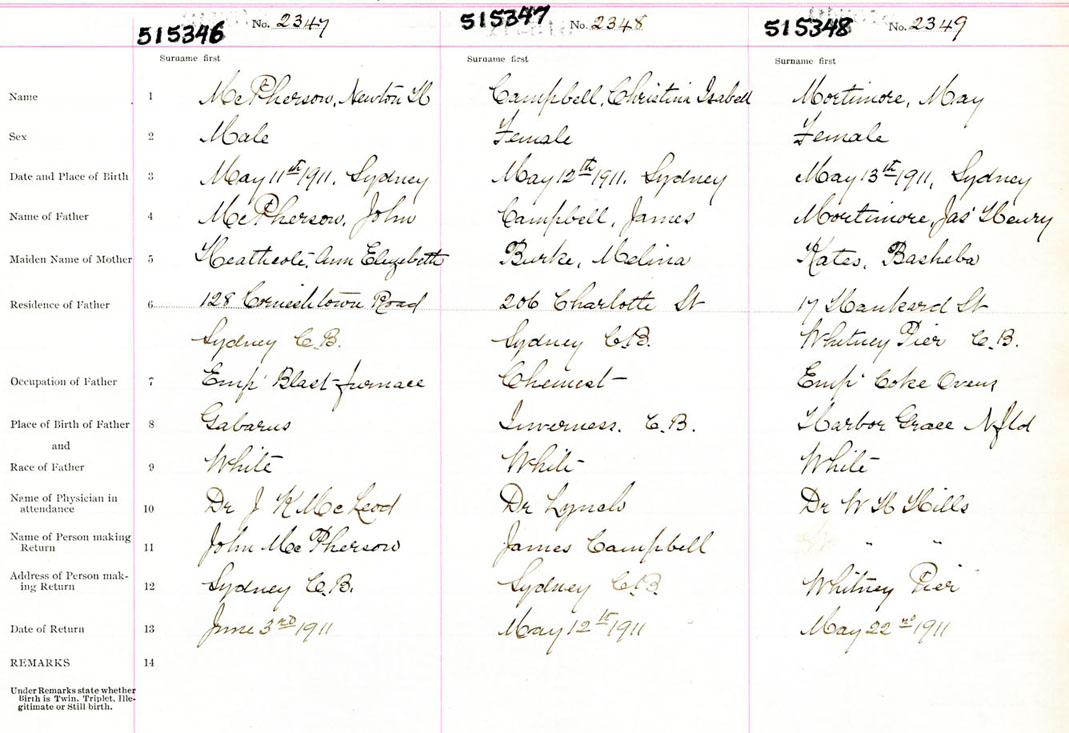 515346 No. 2347 515347 No. 2348 515348 No. 2349
Surname first Surname first Surname first
Name 1 McPherson, Newton H Campbell, Christina Isabell Mortimore, May
Sex 2 Male Female Female
Date and Place of Birth 3 May 11th 1911. Sydney May 12th 1911. Sydney May 13th 1911, Sydney
Name of Father 4 McPherson, John Campbell, James Mortimore, Jas Henry
Maiden Name of Mother 5 Heathcote, Ann Elizabeth Burke, Melina Kates, Basheba
Residence of Father 6 128 Cornishtown Road 206 Charlotte St 17 Hankard St
Sydney C.B. Sydney C.B. Whitney Pier C.B.
Occupation of Father 7 Emp Blast furnace Chemest Emp Coke Ovens
Place of Birth of Father 8 Gabarus Inverness. C.B. Harbor Grace Nfld
and
Race of Father 9 White White White
Name of Physician in
attendance 10 Dr J K McLeod Dr Lynch Dr W H Hills
Name of Person making
Return 11 John McPherson James Campbell " "
Address of Person mak-
ing Return 12 Sydney C.B. Sydney C.B Whitney Pier
Date of Return 13 June 3rd 1911 May 12th 1911 May 22nd 1911
REMARKS 14
Under Remarks state whether
Birth is Twin, Triplet, Ille-
gitimate or Still birth.